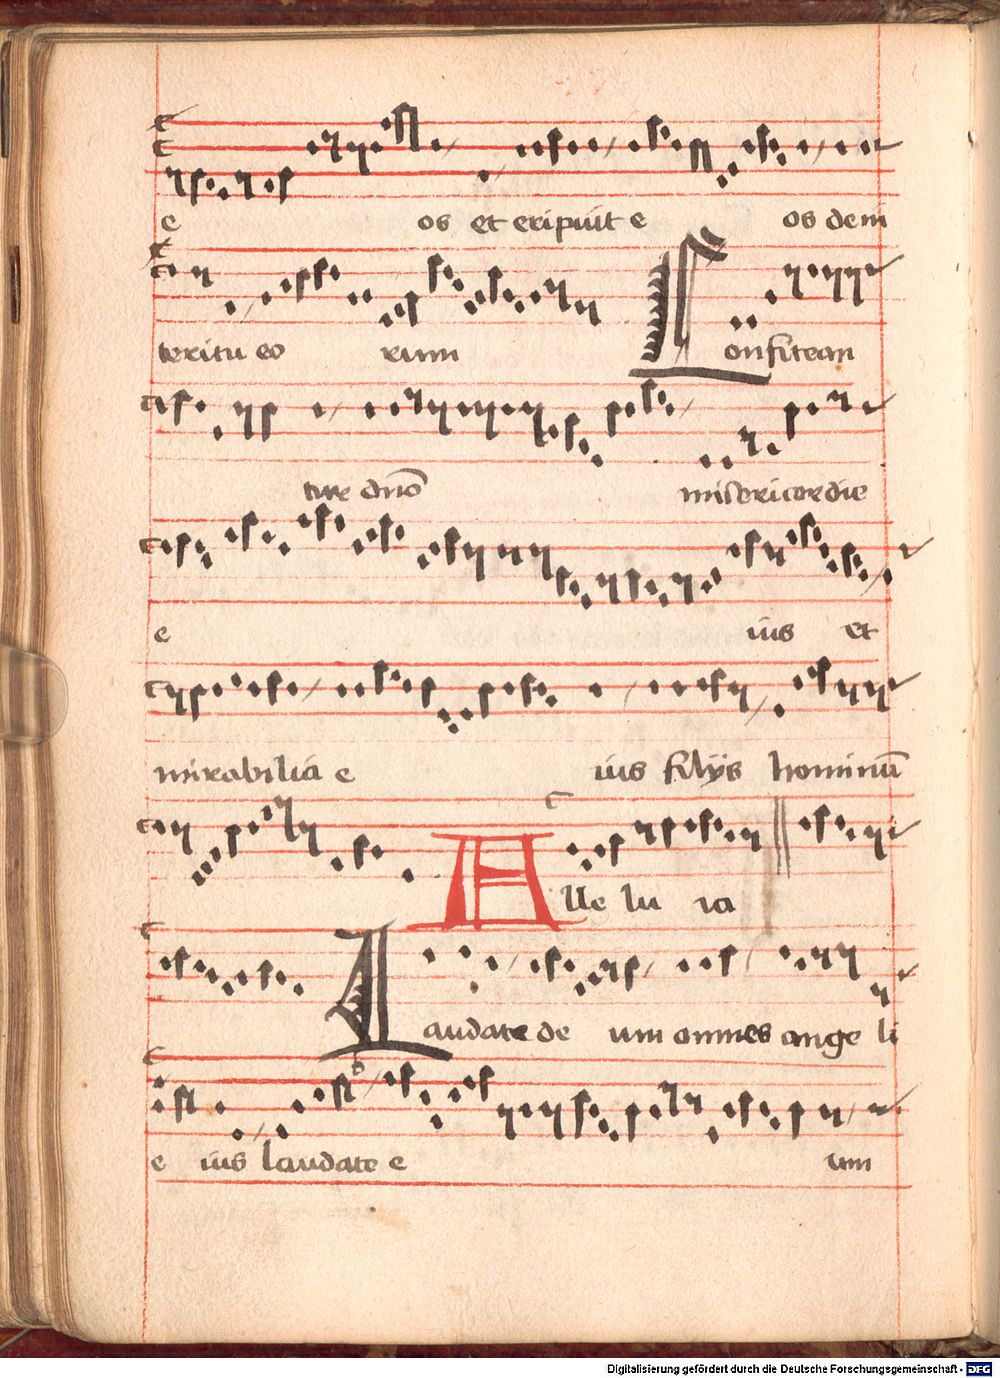 e os et eripuit e os de in
teritu eo rum Confitean
tur dño misericordie
e ius et
mirabilia e ius filijs hominū
Alle lu ia
Laudate de um omnes ange li
e ius laudate e um
Digitalisierung gefördert durch die Deutsche Forschungsgemeinschaft - DFG